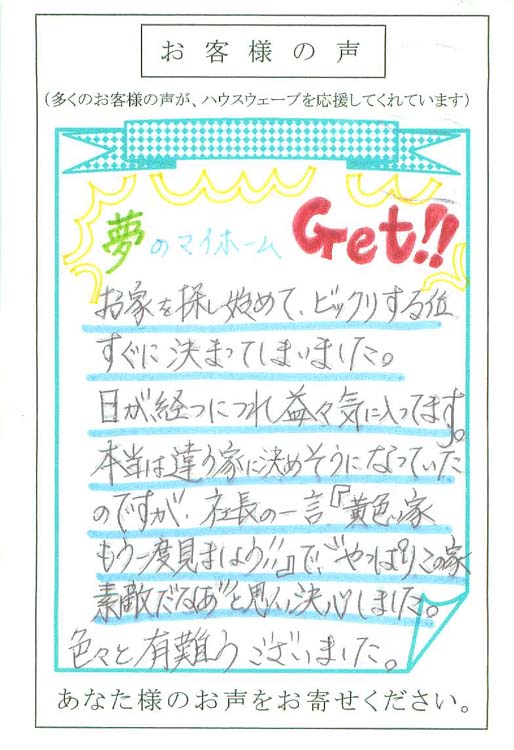 お客様の声
(多くのお客様の声が、ハウスウェーブを応援してくれています)
夢のマイホーム Get!!
お家を探し始めて、ビックリする位
すぐに決まってしまいました。
日が経つにつれ益々気に入ってます。
本当は違う家に決めそうになっていた
のですが、社長の一言『黄色い家
もう一度見ましょう!!』で、"やっぱりこの家
素敵だなぁ"と思い決心しました。
色々と有難うございました。
あなた様のお声をお寄せください。